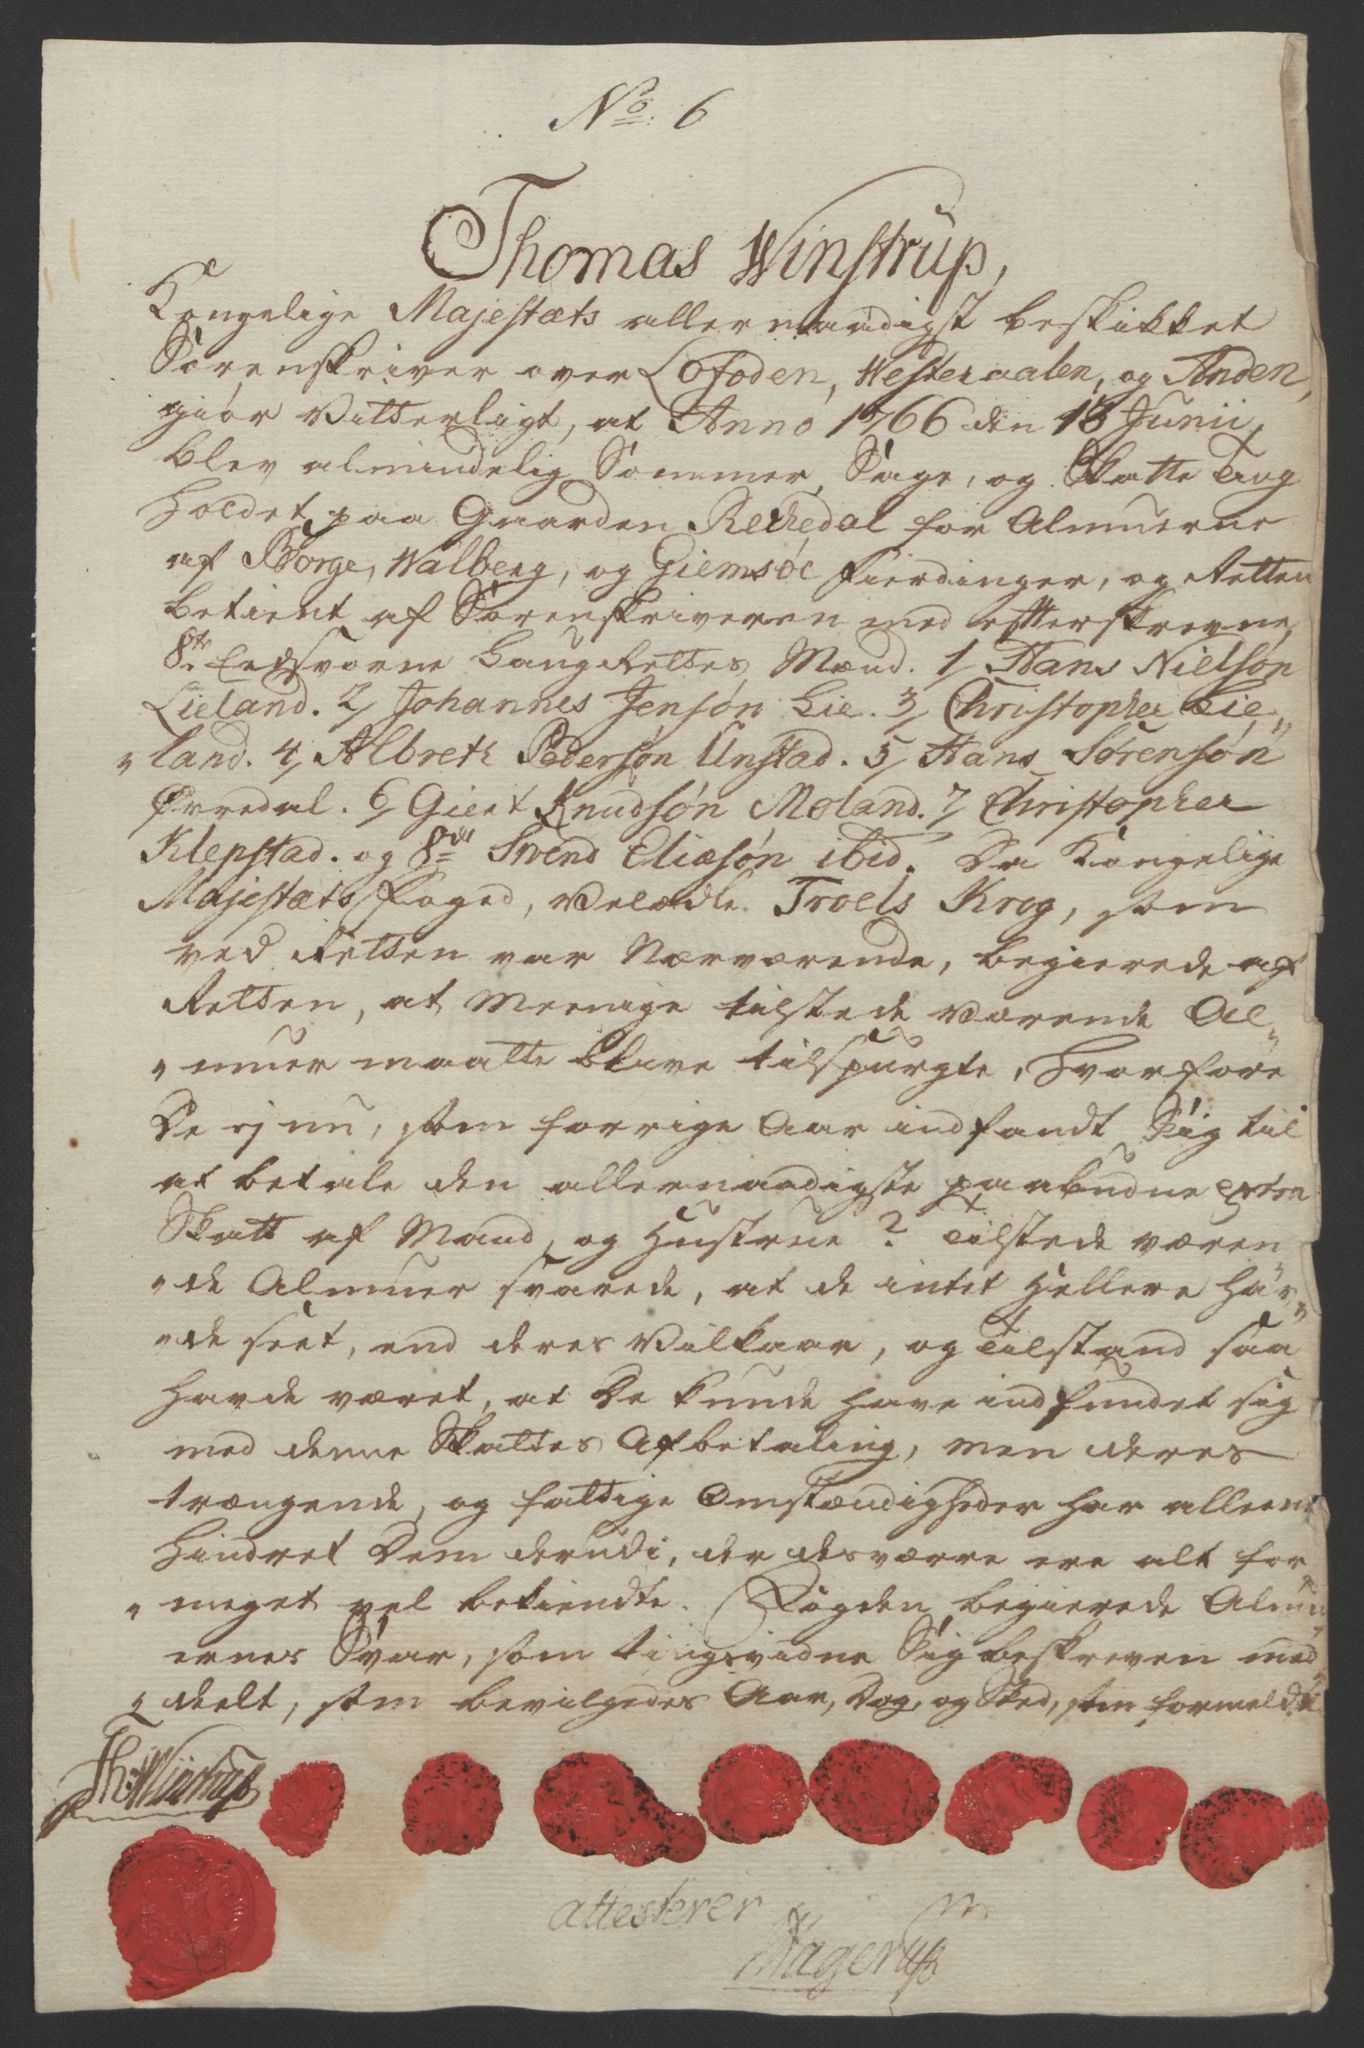 No. 6
Thomas Winstrup,
Kongelige Majestæts allernaadigst beskikket
Sorenskriver over Lofoden, Westeraalen, og Anden,
giør Vitterligt, at Anno 1766 den 18 Junii,
blev almindelig Sommer, Sage, og Skatte Ting
holdet paa Gaarden Rechedal for Almuerne
af Borge, Walberg, og Giemsøe Fierdinger, og Retten
betient af Sorenskriveren med efterskrevne
8te Eedsvorne Laug Rettes Mænd. 1/ Hans Nielsøn
Lieland. 2/ Johannes Jensøn Lie. 3/ Christopher Lie,,
„land. 4/ Albreth Pedersøn Unstad. 5/ Hans Sørensøn
Øvredal. 6/ Giert Knudsøn Moland. 7/ Christopher
Klepstad. og 8de Svend Eliæsøn ibid. Da Kongelige
Majestæts Foged, Velædle Troels Krog, som
ved Retten var Nærværende, begierede af
Retten, at Meenige tilstede værende Al„
„muer maatte blive tilspurgte, hvorfore
De ej nu, som forrige Aar indfandt Sig til
at betale den allernaadigste paabudne Extra
Skatt af Mand, og Hustrue? Tilstede væren„
„de Almuer svarede, at de intet hellere hav„
„de seet, end deres Vilkaar, og Tilstand saa
havde været, at De kunde have indfundet sig
med denne Skattes Afbetaling, men deres
trængende, og fattige Omstændigheder har alleene
hindret Dem derudi, der desværre ere alt for
„meget vel bekiendte. Fogden begierede Almu„
ernes Svar, som tingsvidne Sig beskreven med„
„deelt, som bevilgedes Aar, Dag, og Sted, som formeldt.
Th: Winstrup
attesterer
Hagerup